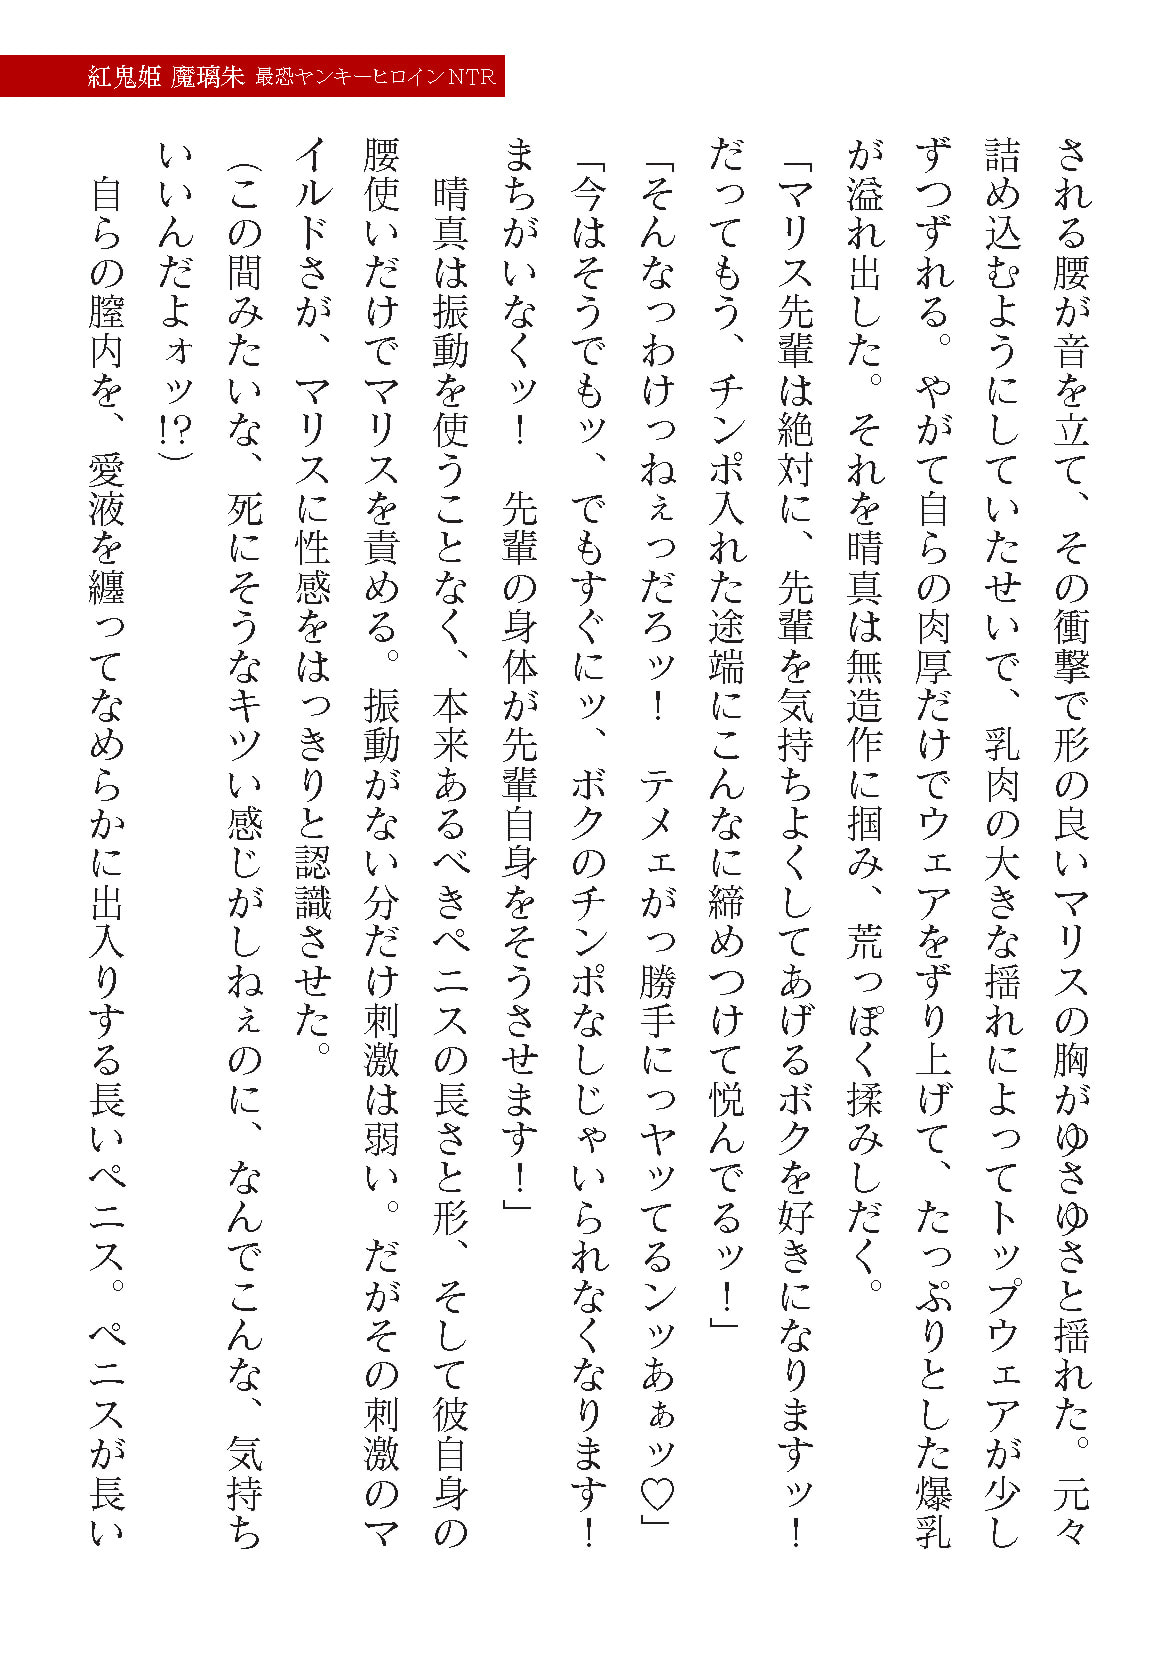 紅鬼姫 魔璃朱 最恐ヤンキーヒロインNTR
される腰が音を立て、その衝撃で形の良いマリスの胸がゆさゆさと揺れた。元々
詰め込むようにしていたせいで、乳肉の大きな揺れによってトップウェアが少し
ずつずれる。やがて自らの肉厚だけでウェアをずり上げて、たっぷりとした爆乳
が溢れ出した。それを晴真は無造作に掴み、荒っぽく揉みしだく。
「マリス先輩は絶対に、先輩を気持ちよくしてあげるボクを好きになりますッ！
だってもう、チンポ入れた途端にこんなに締めつけて悦んでるッ！」
「そんなっわけっねぇっだろッ！　テメェがっ勝手にっヤッてるンッあぁッ♡」
「今はそうでもッ、でもすぐにッ、ボクのチンポなしじゃいられなくなります！
まちがいなくッ！　先輩の身体が先輩自身をそうさせます！」
　晴真は振動を使うことなく、本来あるべきペニスの長さと形、そして彼自身の
腰使いだけでマリスを責める。振動がない分だけ刺激は弱い。だがその刺激のマ
イルドさが、マリスに性感をはっきりと認識させた。
（この間みたいな、死にそうなキツい感じがしねぇのに、なんでこんな、気持ち
いいんだよォッ!?）
　自らの膣内を、愛液を纏ってなめらかに出入りする長いペニス。ペニスが長い